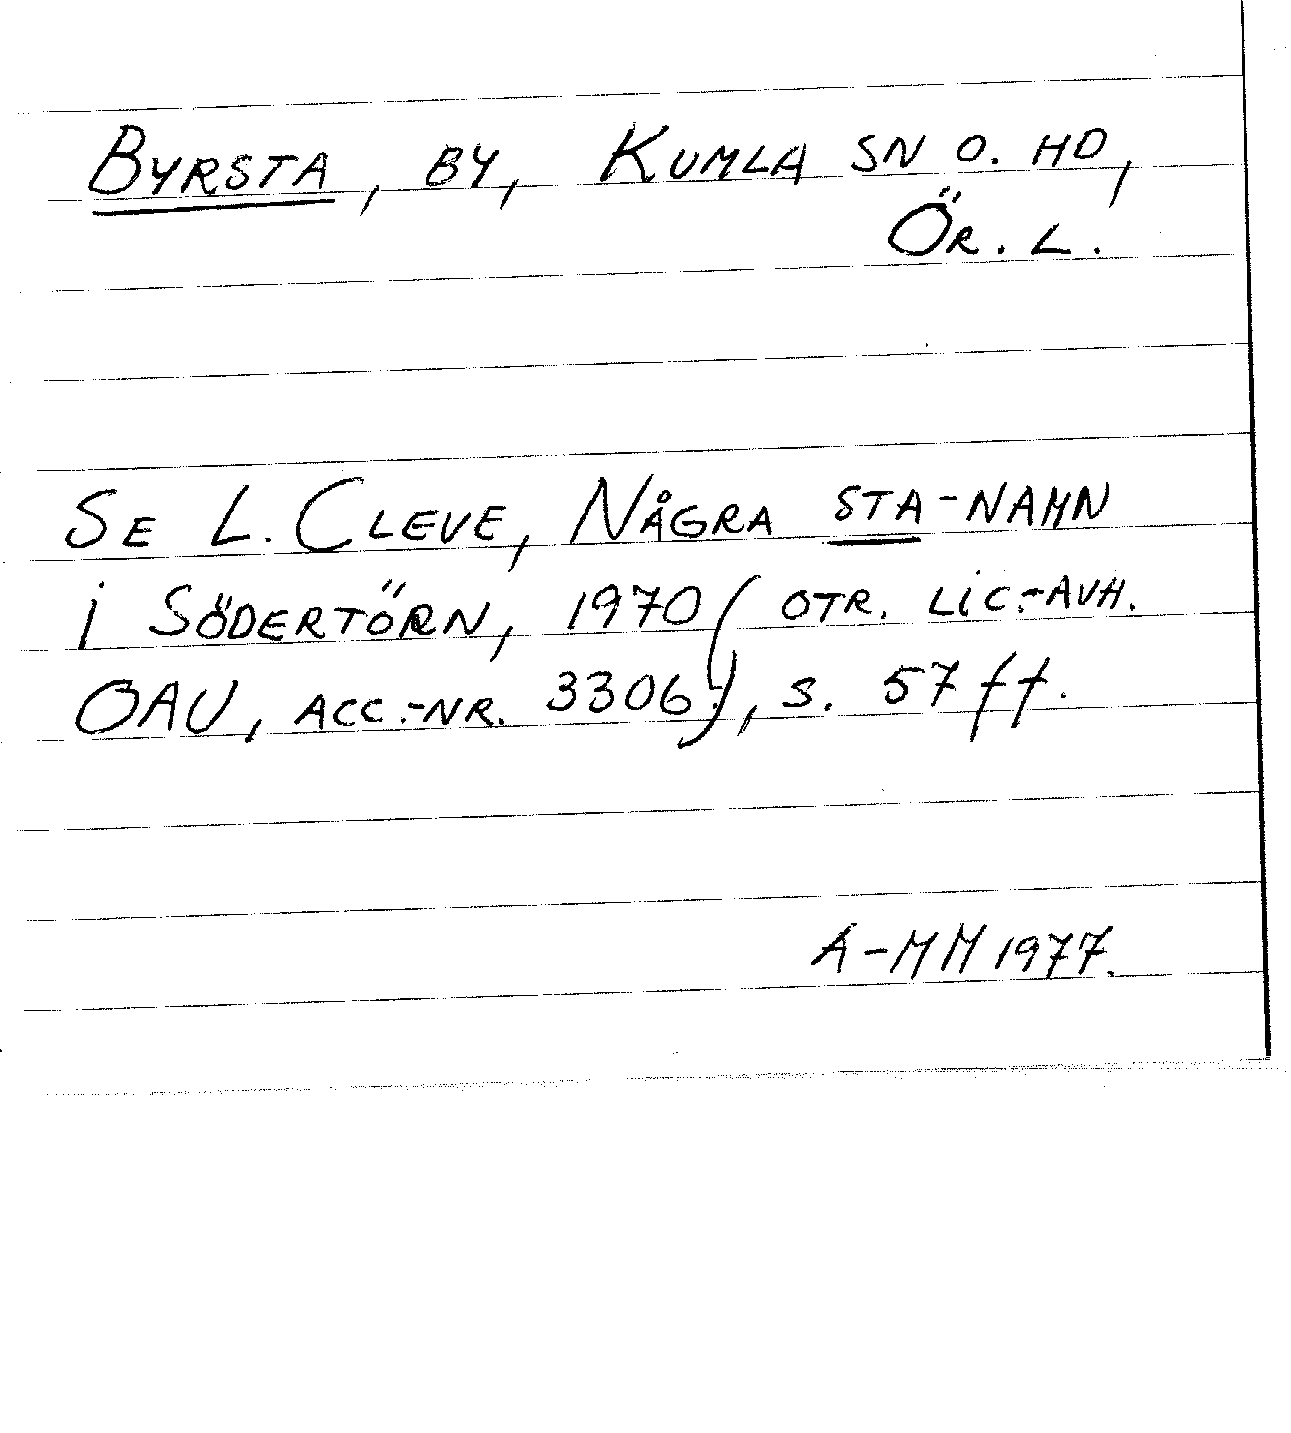 BYRSTA, BY, KUMLA SN O. HD,
ÖR. L.
SE L. CLEVE, NÅGRA STA-NAMN
I SÖDERTÖRN, 1970 (OTR. LIC.-AVH.
OAU, ACC.-NR. 3306.), S. 57 ff.
A-MM 1977.